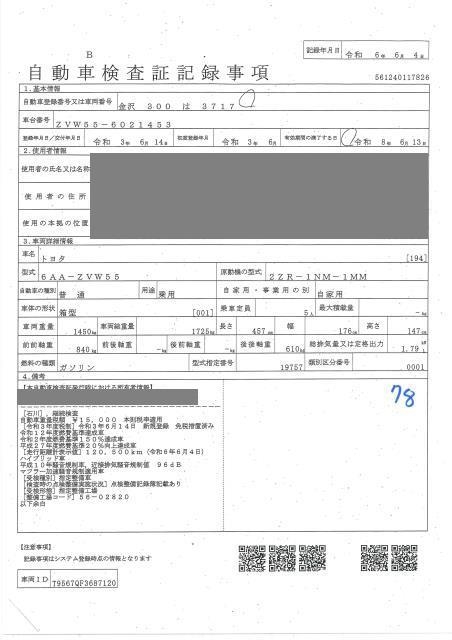 B
記録年月日 令和 6年 6月 4日
自動車検査証記録事項
561240117826
1.基本情報
自動車登録番号又は車両番号 金沢 300 は 3717
車台番号 ZVW55-6021453
登録年月日/交付年月日 令和 3年 6月 14日 初度登録年月 令和 3年 6月 有効期間の満了する日 令和 8年 6月 13日
2.使用者情報
使用者の氏名又は名称
使用者の住所
使用の本拠の位置
3.車両詳細情報
車名 トヨタ [194]
型式 6AA-ZVW55 原動機の型式 2ZR-1NM-1MM
自動車の種別 普通 用途 乗用 自家用・事業用の別 自家用
車体の形状 箱型 [001] 乗車定員 5人 最大積載量 -kg
車両重量 1450kg 車両総重量 1725kg 長さ 457cm 幅 176cm 高さ 147cm
前前軸重 840kg 前後軸重 -kg 後前軸重 -kg 後後軸重 610kg 総排気量又は定格出力 1.79L
燃料の種類 ガソリン 型式指定番号 19757 類別区分番号 0001
4.備考
78
[石川], 継続検査
自動車重量税額 ¥15,000 本則税率適用
[令和3年度税制] 令和3年6月14日 新規登録 免税措置済み
令和12年度燃費基準達成車
令和2年度燃費基準150%達成車
平成27年度燃費基準20%向上達成車
[走行距離計表示値] 120,500km (令和6年6月4日)
ハイブリッド車
平成10年騒音規制車, 近接排気騒音規制値 96dB
マフラー加速騒音規制適用車
[受検種別] 指定整備車
[検査時の点検整備実施状況] 点検整備記録簿記載あり
[受検形態] 指定整備工場
[整備工場コード] 56-02820
以下余白
【注意事項】
記録事項はシステム登録時点の情報となります
車両ID T9567QF3687120